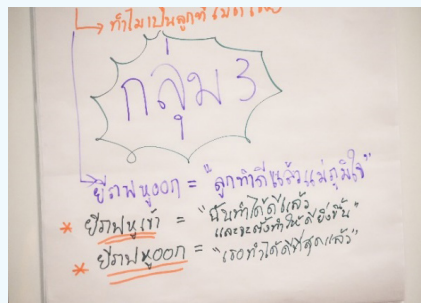 ทำไมเป็นลูกที่
กลุ่ม 3
ยีราฟหูออก = "ลูกทำดีแล้วแม่ภูมิใจ"
* ยีราฟหูเข้า = "ฉันทำได้ดีแล้ว
และจะตั้งทำให้ดียิ่งขึ้น"
* ยีราฟหูออก = "เธอทำได้ดีที่สุดแล้ว"